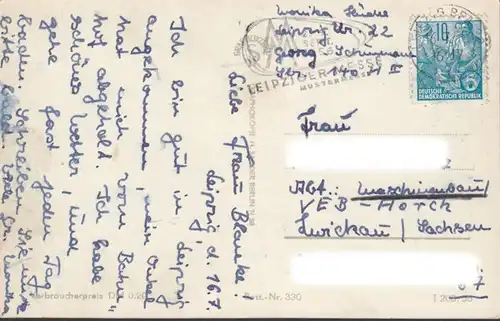 Monika
Leipzig O. 22
Georg Schumann
Str.
LEIPZIGER MESSE
MUSTERMESSE
10
DEUTSCHE
DEMOKRATISCHE REPUBLIK
Leipzig, d. 16.7.
Liebe Frau Blanke.
Ich bin gut in Leipzig
angekommen, mein Onkel
hat mich vom Bahn-
hof abgeholt. Ich habe
schönes Wetter, und
gehe fast jeden Tag
baden. Schreiben Sie mir
bitte bald. Viele Gr. Monika
Frau
Abt.: Maschinenbau
VEB-Horch
Zwickau / Sachsen
Verbraucherpreis DM 0,20
Best.-Nr. 330